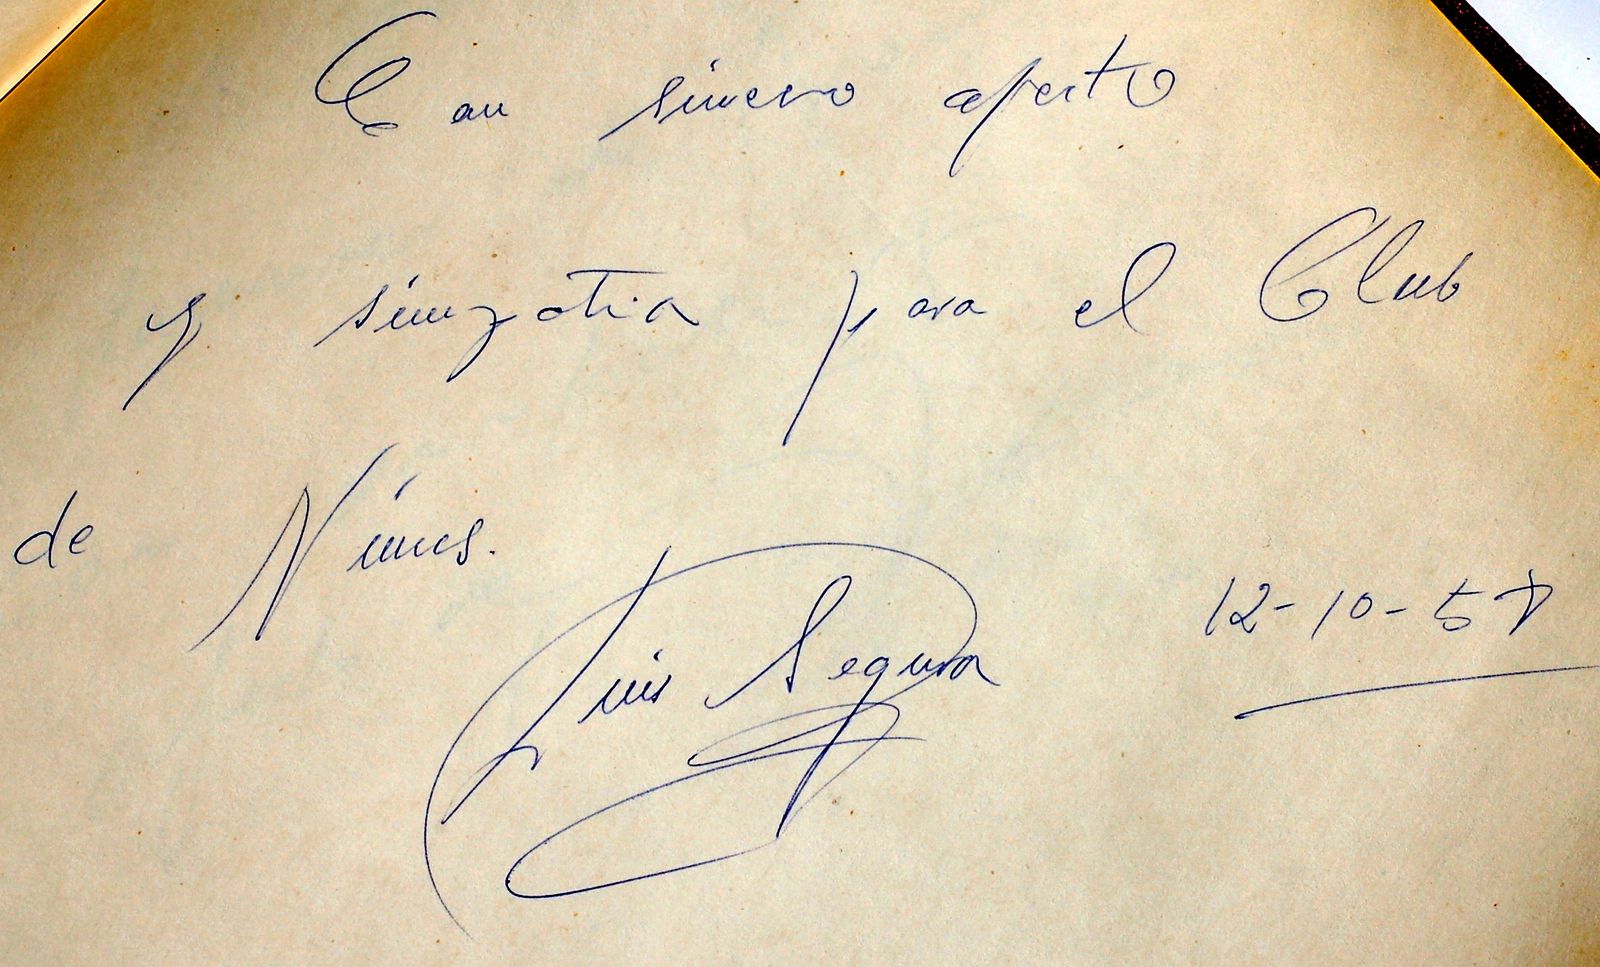 Con sincero afecto
y simpatia para el Club
de Nimes.
Luis Segura
12-10-57